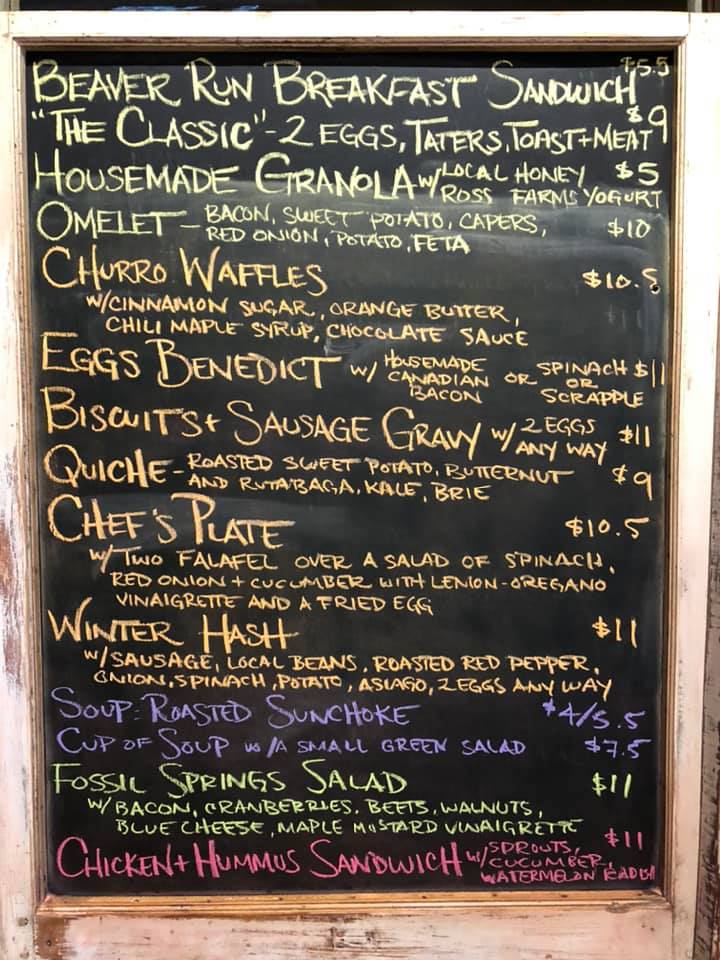 BEAVER RUN BREAKFAST SANDWICH $5.5
"THE CLASSIC"-2 EGGS, TATERS, TOAST+MEAT $9
HOUSEMADE GRANOLA W/ LOCAL HONEY $5
ROSS FARMS YOGURT
OMELET - BACON, SWEET POTATO, CAPERS, $10
RED ONION, POTATO, FETA
CHURRO WAFFLES $10.5
W/CINNAMON SUGAR, ORANGE BUTTER,
CHILI MAPLE SYRUP, CHOCOLATE SAUCE
EGGS BENEDICT W/ HOUSEMADE CANADIAN BACON OR SPINACH OR SCRAPPLE $11
BISCUITS+ SAUSAGE GRAVY W/ 2 EGGS ANY WAY $11
QUICHE - ROASTED SWEET POTATO, BUTTERNUT $9
AND RUTABAGA, KALE, BRIE
CHEF'S PLATE $10.5
W/TWO FALAFEL OVER A SALAD OF SPINACH,
RED ONION + CUCUMBER WITH LEMON-OREGANO
VINAIGRETTE AND A FRIED EGG
WINTER HASH $11
W/SAUSAGE, LOCAL BEANS, ROASTED RED PEPPER,
ONION, SPINACH, POTATO, ASIAGO, 2 EGGS ANY WAY
SOUP: ROASTED SUNCHOKE $4/5.5
CUP OF SOUP W/A SMALL GREEN SALAD $7.5
FOSSIL SPRINGS SALAD $11
W/BACON, CRANBERRIES, BEETS, WALNUTS,
BLUE CHEESE, MAPLE MUSTARD VINAIGRETTE
CHICKEN+HUMMUS SANDWICH W/ SPROUTS, CUCUMBER, WATERMELON RADISH $11